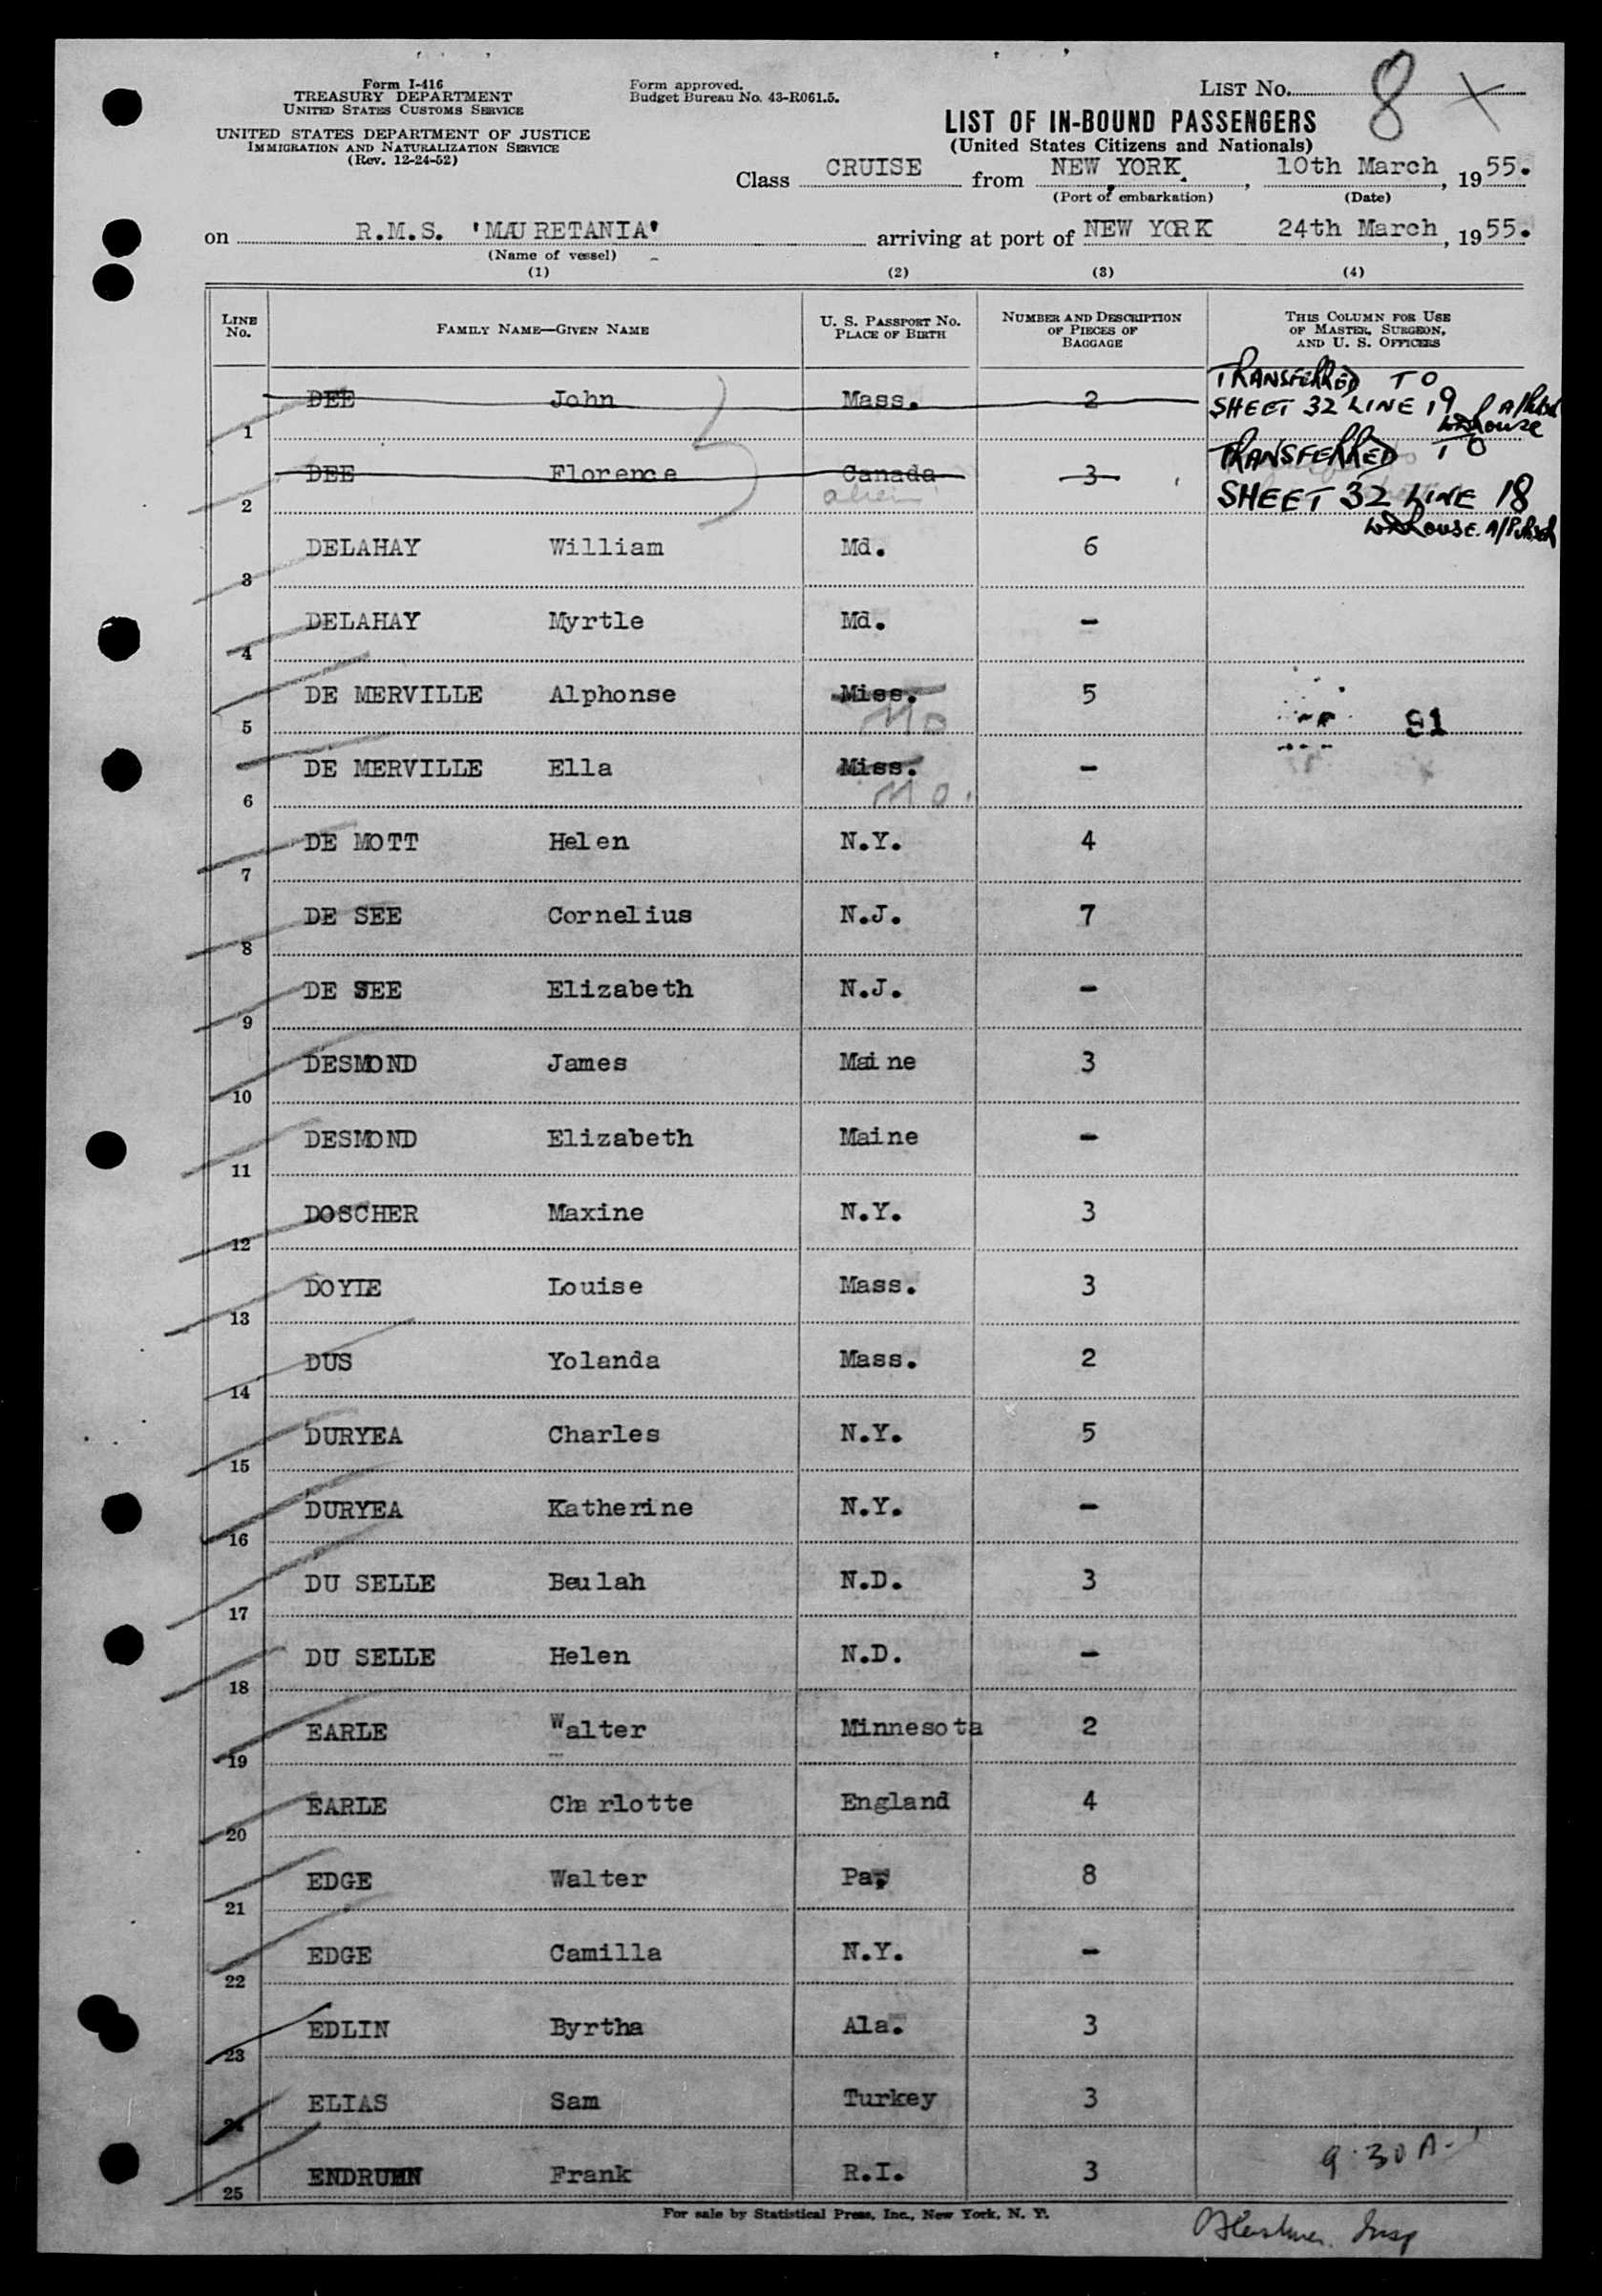 Form I-416
TREASURY DEPARTMENT
UNITED STATES CUSTOMS SERVICE
UNITED STATES DEPARTMENT OF JUSTICE
IMMIGRATION AND NATURALIZATION SERVICE
(Rev. 12-24-52)
Form approved.
Budget Bureau No. 43-R061.5.
LIST No. 8
LIST OF IN-BOUND PASSENGERS
(United States Citizens and Nationals)
Class CRUISE from NEW YORK, 10th March, 1955.
(Port of embarkation) (Date)
on R.M.S. 'MAURETANIA' arriving at port of NEW YORK 24th March, 1955.
(Name of vessel)
(1) (2) (3) (4)
LINE No. FAMILY NAME—GIVEN NAME U. S. PASSPORT No. PLACE OF BIRTH NUMBER AND DESCRIPTION OF PIECES OF BAGGAGE THIS COLUMN FOR USE OF MASTER, SURGEON, AND U. S. OFFICERS
1 DEE John Mass. 2 TRANSFERRED TO SHEET 32 LINE 19
2 DEE Florence Canada alien 3 TRANSFERRED TO SHEET 32 LINE 18
3 DELAHAY William Md. 6
4 DELAHAY Myrtle Md. -
5 DE MERVILLE Alphonse Miss. Mo 5 91
6 DE MERVILLE Ella Miss. Mo. -
7 DE MOTT Helen N.Y. 4
8 DE SEE Cornelius N.J. 7
9 DE SEE Elizabeth N.J. -
10 DESMOND James Maine 3
11 DESMOND Elizabeth Maine -
12 DOSCHER Maxine N.Y. 3
13 DOYLE Louise Mass. 3
14 DUS Yolanda Mass. 2
15 DURYEA Charles N.Y. 5
16 DURYEA Katherine N.Y. -
17 DU SELLE Beulah N.D. 3
18 DU SELLE Helen N.D. -
19 EARLE Walter Minnesota 2
20 EARLE Charlotte England 4
21 EDGE Walter Pa. 8
22 EDGE Camilla N.Y. -
23 EDLIN Byrtha Ala. 3
24 ELIAS Sam Turkey 3
25 ENDRUHN Frank R.I. 3 9.30 A-
For sale by Statistical Press, Inc., New York, N. Y.
Insp